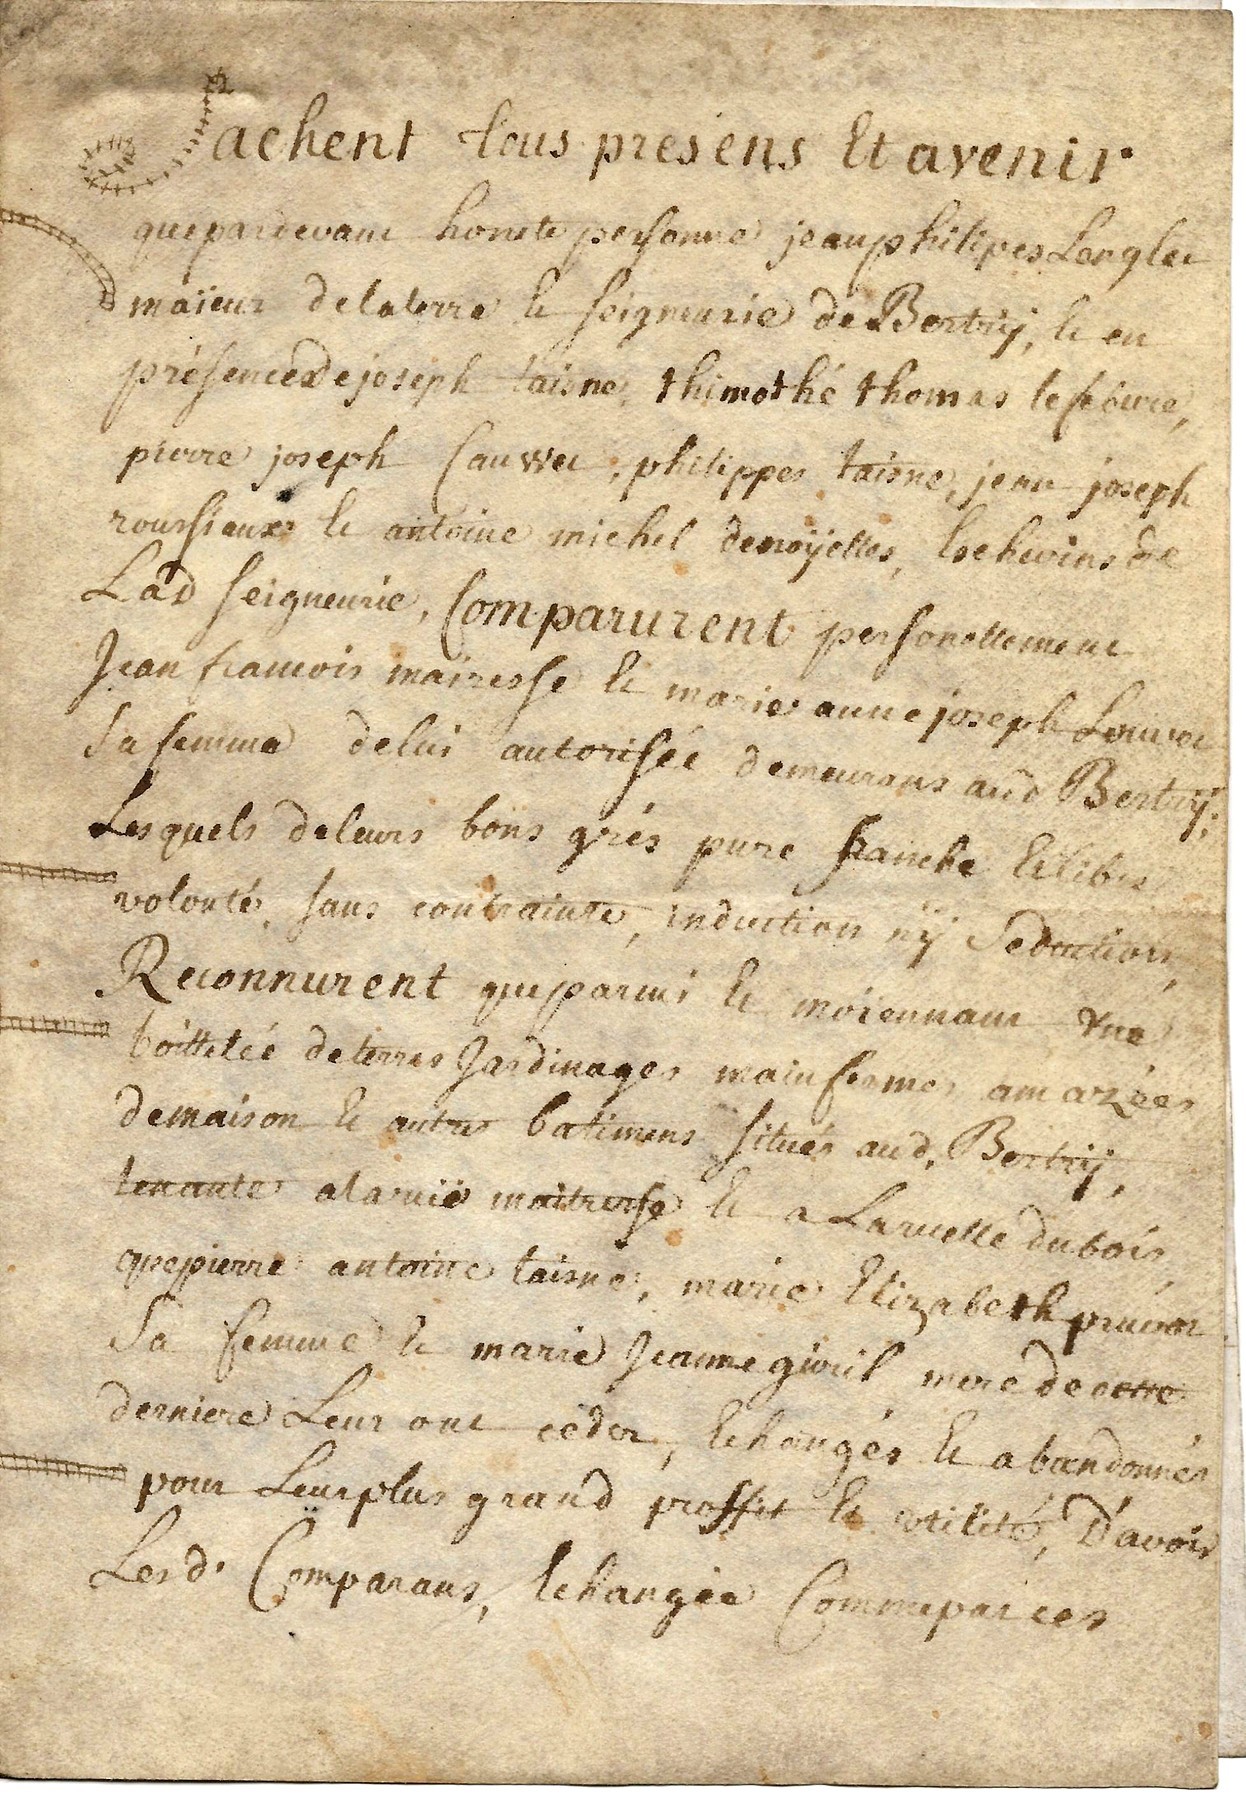 Sachent tous presens Et avenir
que pardevant honete personne jean philipes Langlet
maïeur de la terre Et seigneurie de Bertrÿ, Et en
présence de joseph taisne, thimothé thomas lefebvre,
pierre joseph Cauwet, philippes taisne, jean joseph
roussieaux Et antoine michel denoÿelles, Echevins de
Lad seigneurie, Comparurent personellement
Jean francois mairesse Et marie anne joseph Louvet
Sa femme de lui autorisée demeurans aud Bertrÿ;
Lesquels de leurs bons grés pure franche Et libre
volonté, sans contrainte, induction nÿ Seduction,
Reconnurent que parmi Et moïennant vne
boittelée de terres Jardinages mainfermes amazées
de maison Et autres batimens situés aud. Bertrÿ,
tenante a la ruë maitresse Et a La ruelle du bois,
que pierre antoine taisne, marie Elizabeth pruvot
Sa femme Et marie Jeanne gÿril mere de cette
derniere Leur ont cédez, Echangés Et abandonnés
pour Leur plus grand proffit Et vtilité, D'avoir
Lesd. Comparans, Echangée Comme par ces